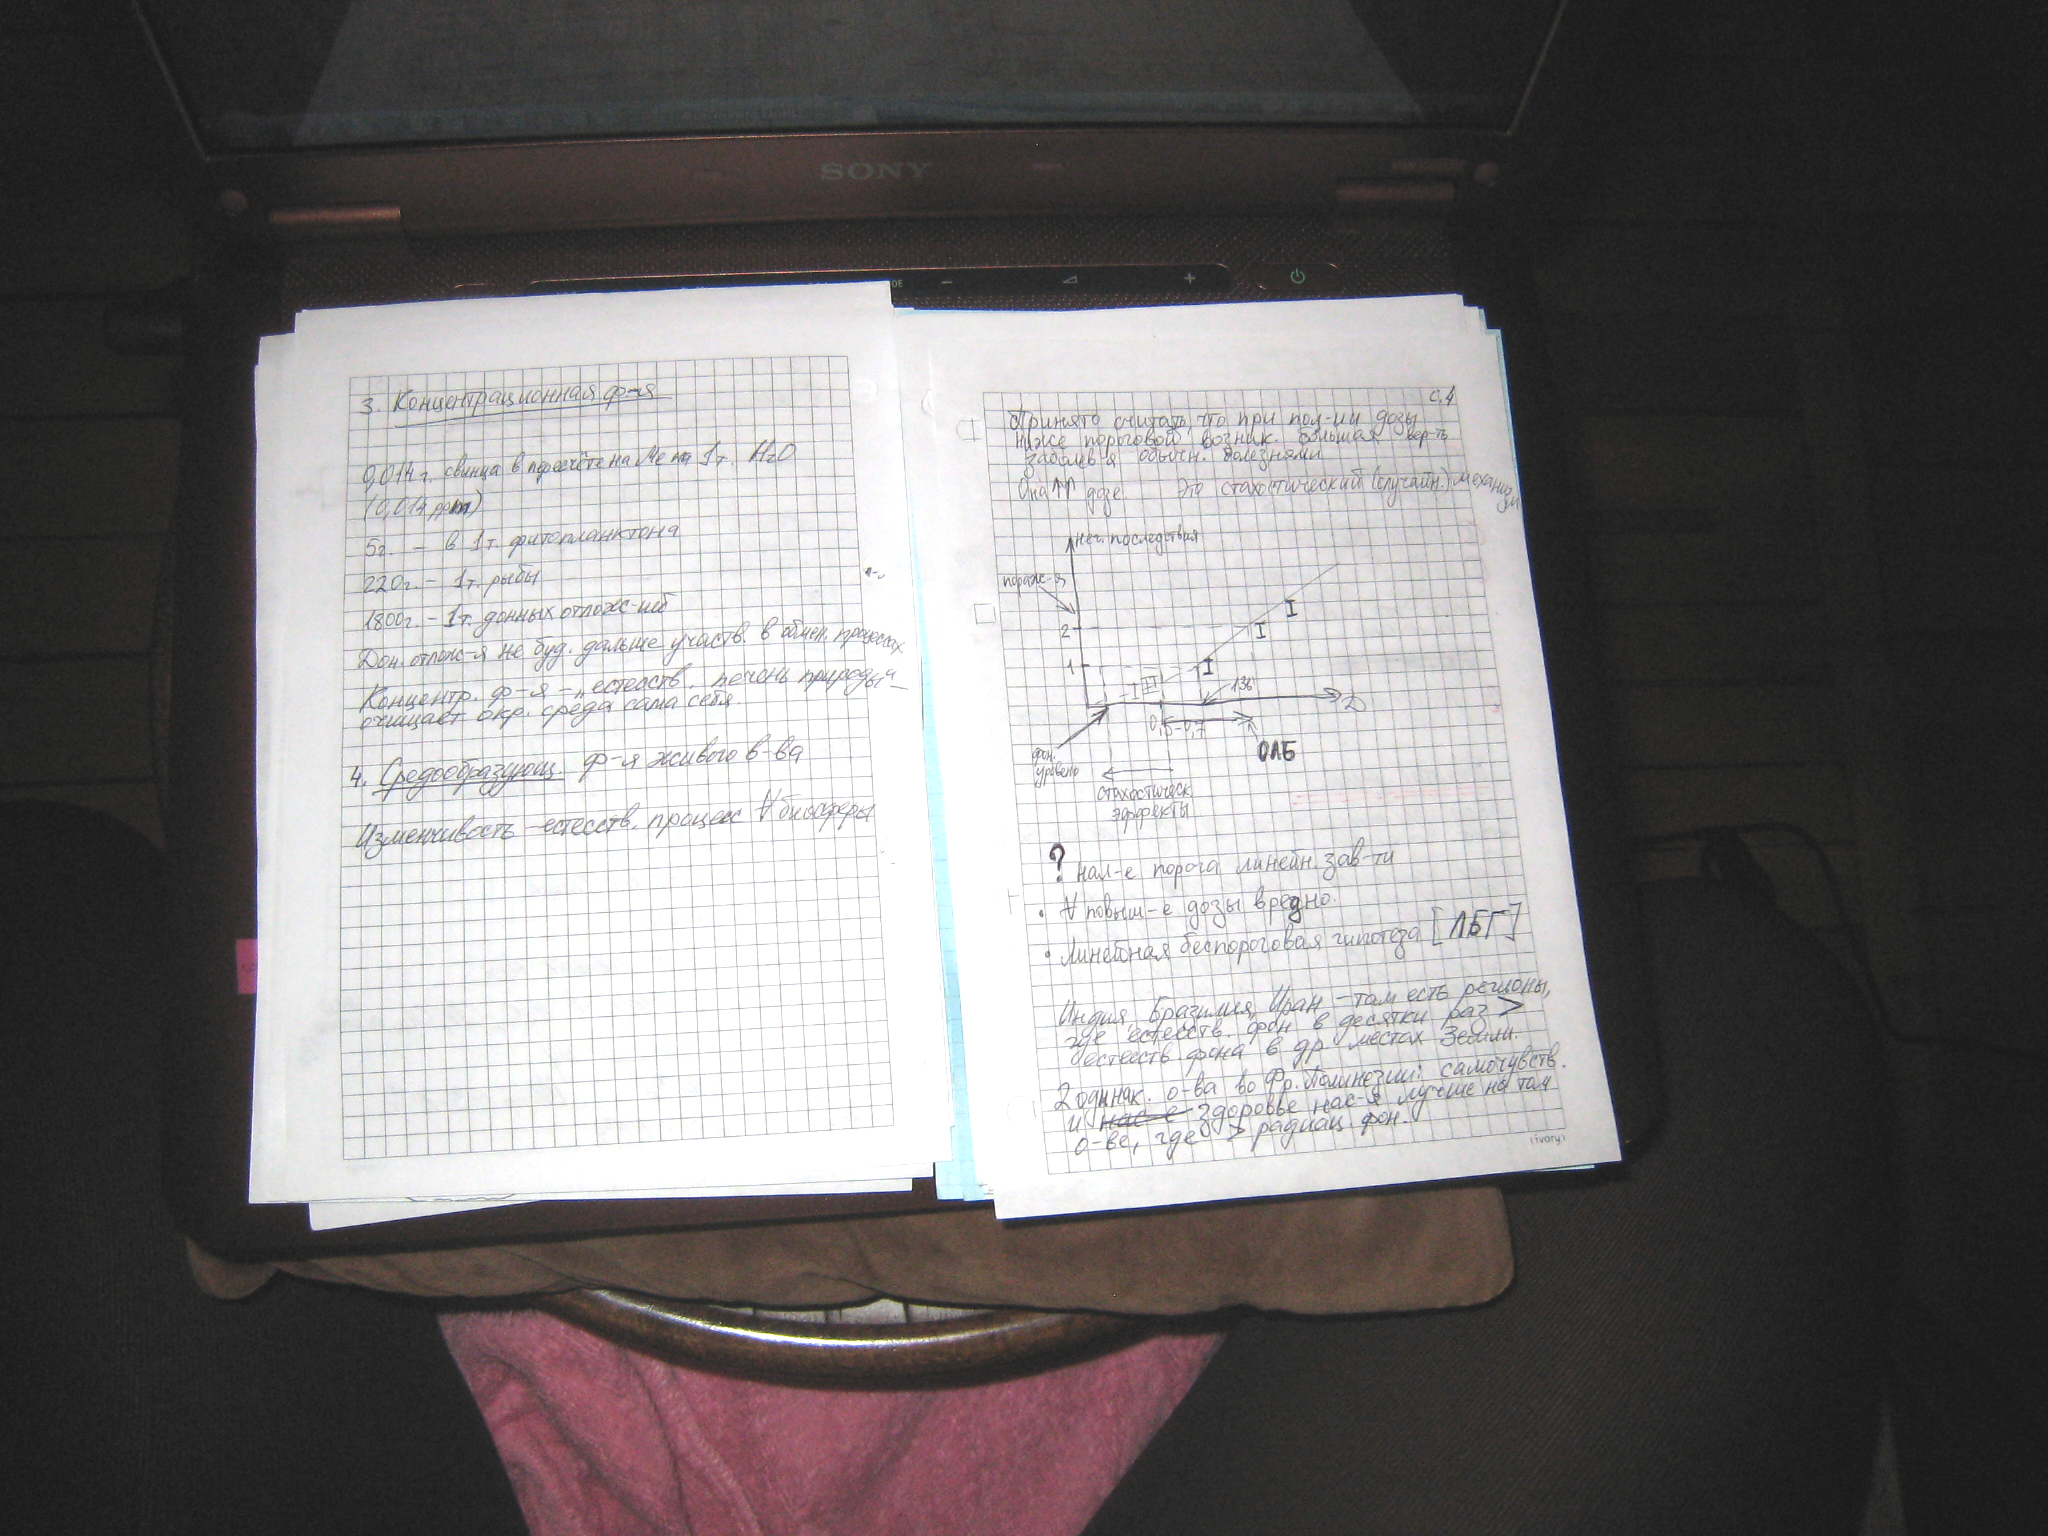 SONY
3. Концентрационная ф-я
0,014г. свинца в пересчёте на Ме на 1т. H₂O
(0,014 ppm)
5г. – в 1т. фитопланктона
220г. – 1т. рыбы
1800г. – 1т. донных отлож-ий
Дон. отлож-я не буд. дальше участв. в обмен. процессах
Концентр. ф-я – „естеств. печень природы“ –
очищает окр. среда сама себя.
4. Средообразующ. ф-я живого в-ва
Изменчивость – естесств. процесс ∀ биосферы
с. 4
Принято считать, что при пол-ии дозы
ниже пороговой возник. большая вер-ть
заболев-я обычн. болезнями
Она ↑↑ дозе. Это стахостический (случайн.) механизм
нег. последствия
пораж-я
2
I
I
1
I
I
III
136
D
0,5-0,7
фон.
уровень
ОЛБ
стахостическ.
эффекты
? нал-е порога линейн. зав-ти
• ∀ повыш-е дозы вредно.
• Линейная беспороговая гипотеза [ЛБГ]
Индия, Бразилия, Иран – там есть регионы,
где естеств. фон в десятки раз >
естеств. фона в др. местах Земли.
2 одинак. о-ва во Фр. Полинезии: самочувств.
и здоровье нас-я лучше на том
о-ве, где > радиац. фон.
(ivory)